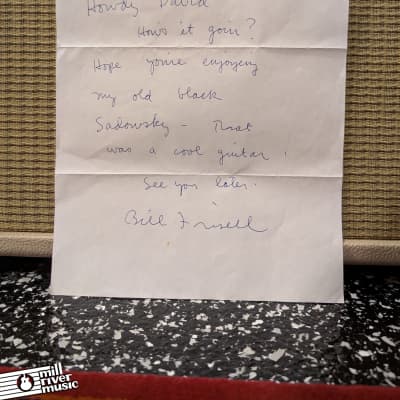 Howdy David
How's it goin?
Hope you're enjoying
my old black
Sadowsky - That
was a cool guitar.
See you later.
Bill Frisell
mill
river
music